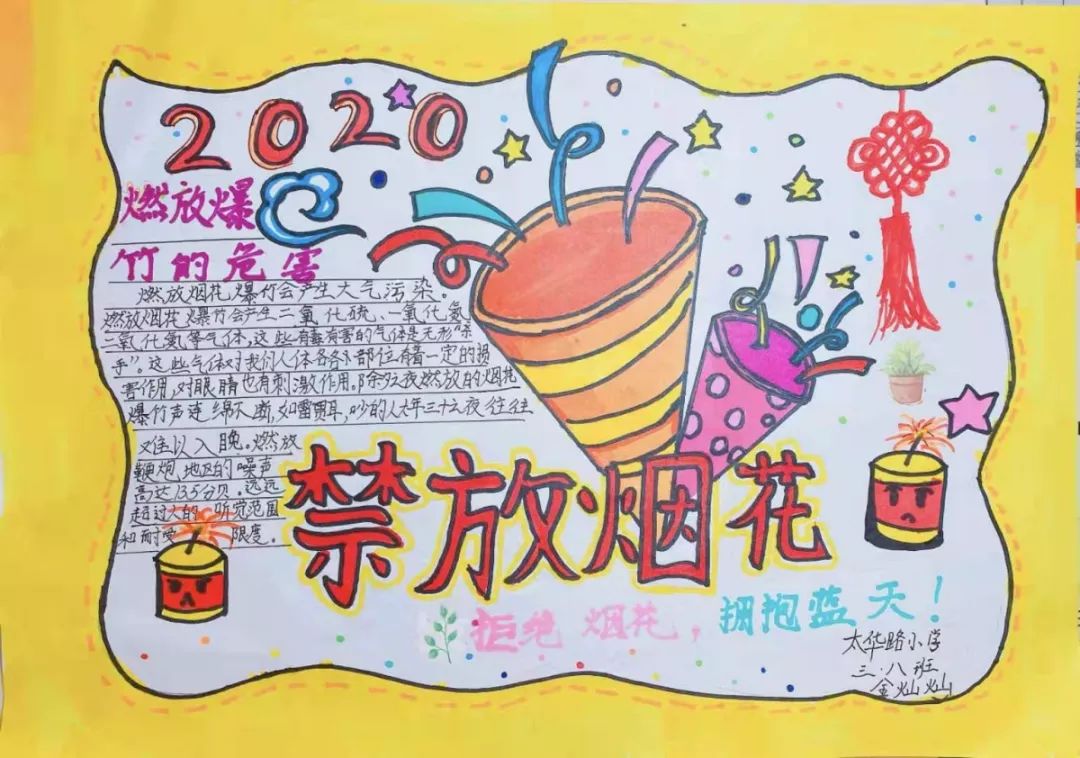 2020
燃放爆
竹的危害
燃放烟花爆竹会产生大气污染。
燃放烟花爆竹会产生二氧化硫、一氧化氮
二氧化氮等气体,这些有毒有害的气体是无形“杀
手”。这些气体对我们人体各各个部位有着一定的损
害作用,对眼睛也有刺激作用。除夕夜燃放的烟花
爆竹声连绵不断,如雷贯耳,吵的人大年三十夜往往
难以入晚。燃放
鞭炮地区的噪声
高达135分贝。远远
超过人的听觉范围
和耐受限度。
禁放烟花
拒绝烟花,拥抱蓝天!
太华路小学
三·八班
金灿灿